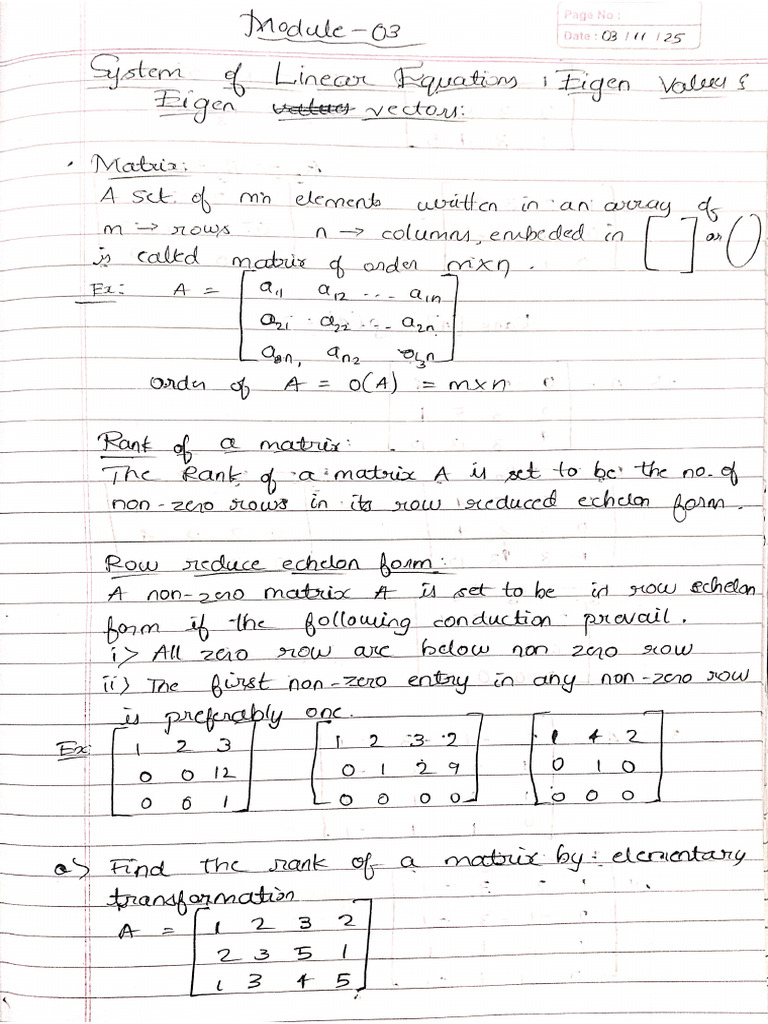 Module-03
Page No :
Date : 03/11/25
System of Linear Equations, Eigen Values &
Eigen values vectors:
• Matrix:
A set of mn elements written in an array of
m → rows n → columns, embeded in [ ] or ( )
is called matrix of order m×n.
Ex: A = [ a11 a12 ... a1n
a21 a22 ... a2n
an1, an2 a3n ]
order of A = O(A) = m×n
Rank of a matrix:
The Rank of a matrix A is set to be the no. of
non-zero rows in its row reduced echelon form.
Row reduce echelon form:
A non-zero matrix A is set to be in row echelon
form if the following conduction prevail.
i> All zero row are below non zero row
ii) The first non-zero entry in any non-zero row
is preferably one.
Ex: [ 1 2 3 [ 1 2 3 2 [ 1 4 2
0 0 12 0 1 2 9 0 1 0
0 0 1 ] 0 0 0 0 ] 0 0 0 ]
Q> Find the rank of a matrix by elementary
transformation
A = [ 1 2 3 2
2 3 5 1
1 3 4 5 ]